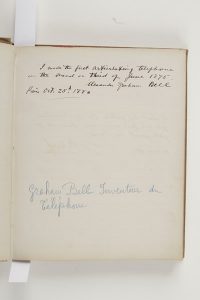 I made the first articulating telephone
in the world in third of June 1875
Alexander Graham Bell
Paris Oct. 25th 1880
Graham Bell Inventeur du
Téléphone